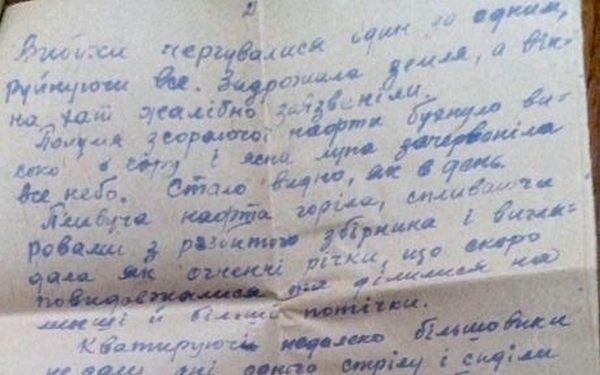 2
Вибухи чергувалися один за одним,
руйнуючи все. Задрожала земля, а вік-
на хат жалібно задзвеніли.
Полумя з горючої нафти бухнуло ви-
соко в гору і ясна луна зачервоніла
все небо. Стало видно, як в день.
Пливуча нафта горіла, спливаючи
ровами з розбитого збірника і вигля-
дала як огненні річки, що скоро
повидовжалися та ділилися на
менші й більші потічки.
Кватируючі недалеко більшовики
не дали ані одного стрілу і сиділи